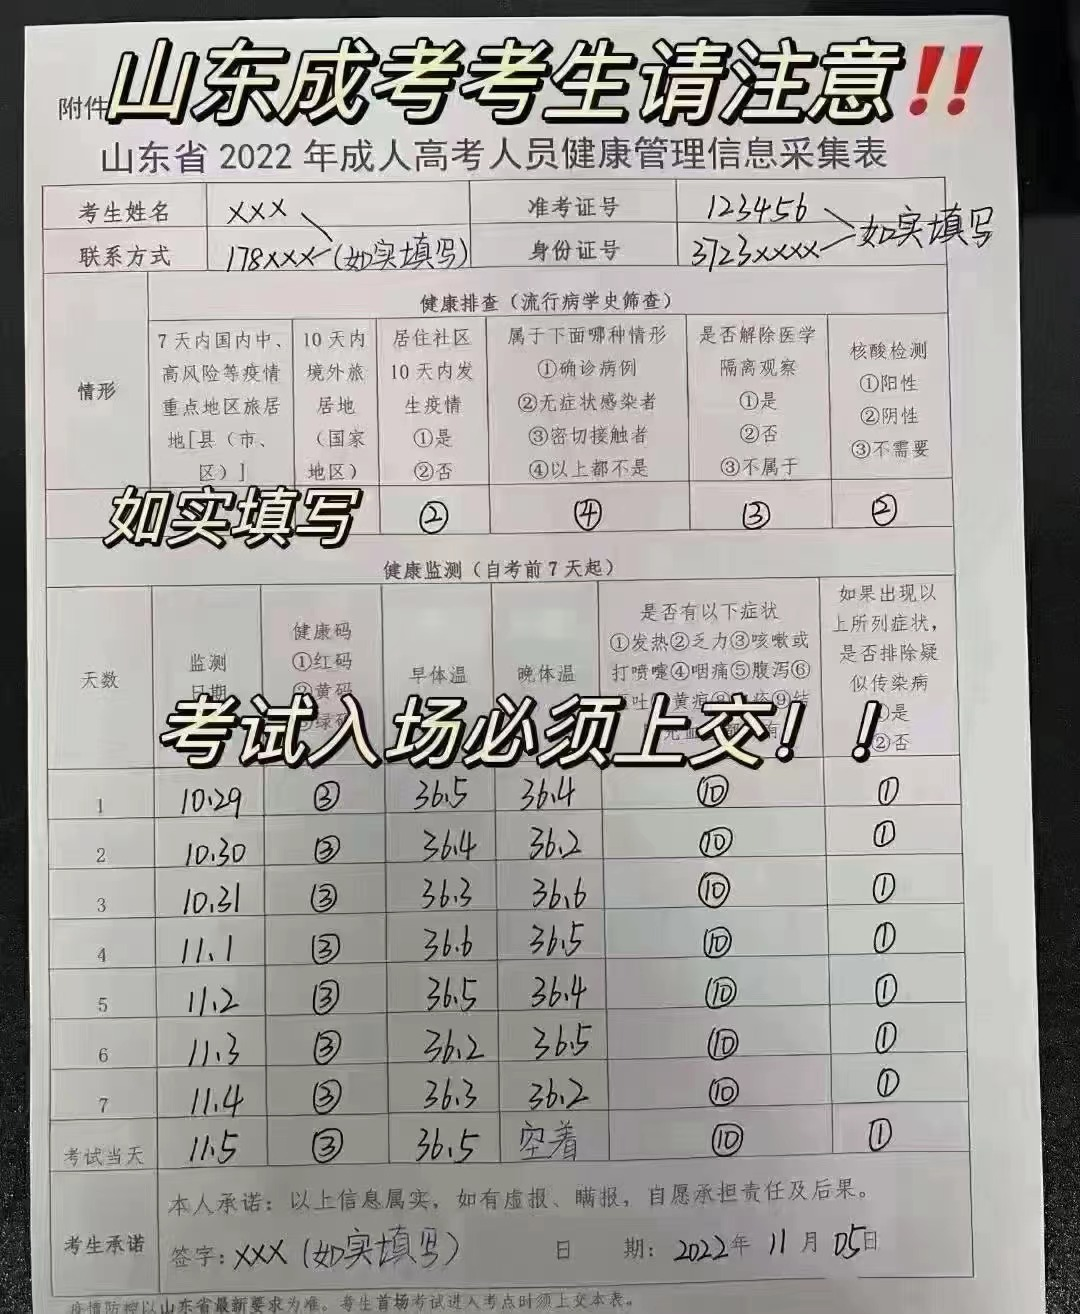 山东成考考生请注意‼️
附件
山东省 2022 年成人高考人员健康管理信息采集表
考生姓名 XXX 准考证号 123456
如实填写
联系方式 178XXX (如实填写) 身份证号 3723XXXX
情形
健康排查（流行病学史筛查）
7 天内国内中、
高风险等疫情
重点地区旅居
地[县（市、
区）]
10 天内
境外旅
居地
（国家
地区）
居住社区
10 天内发
生疫情
①是
②否
属于下面哪种情形
①确诊病例
②无症状感染者
③密切接触者
④以上都不是
是否解除医学
隔离观察
①是
②否
③不属于
核酸检测
①阳性
②阴性
③不需要
如实填写 ② ④ ③ ②
健康监测（自考前 7 天起）
天数
监测
日期
健康码
①红码
②黄码
绿码
早体温
晚体温
是否有以下症状
①发热②乏力③咳嗽或
打喷嚏④咽痛⑤腹泻⑥
吐 黄疸 ⑨结
有
如果出现以
上所列症状，
是否排除疑
似传染病
①是
②否
考试入场必须上交！！
1 10.29 ③ 36.5 36.4 ⑩ ①
2 10.30 ③ 36.4 36.2 ⑩ ①
3 10.31 ③ 36.3 36.6 ⑩ ①
4 11.1 ③ 36.6 36.5 ⑩ ①
5 11.2 ③ 36.5 36.4 ⑩ ①
6 11.3 ③ 36.2 36.5 ⑩ ①
7 11.4 ③ 36.3 36.2 ⑩ ①
考试当天 11.5 ③ 36.5 空着 ⑩ ①
考生承诺
本人承诺：以上信息属实，如有虚报、瞒报，自愿承担责任及后果。
签字：XXX (如实填写) 日 期：2022年 11 月 05日
疫情防控以山东省最新要求为准。考生首场考试进入考点时须上交本表。